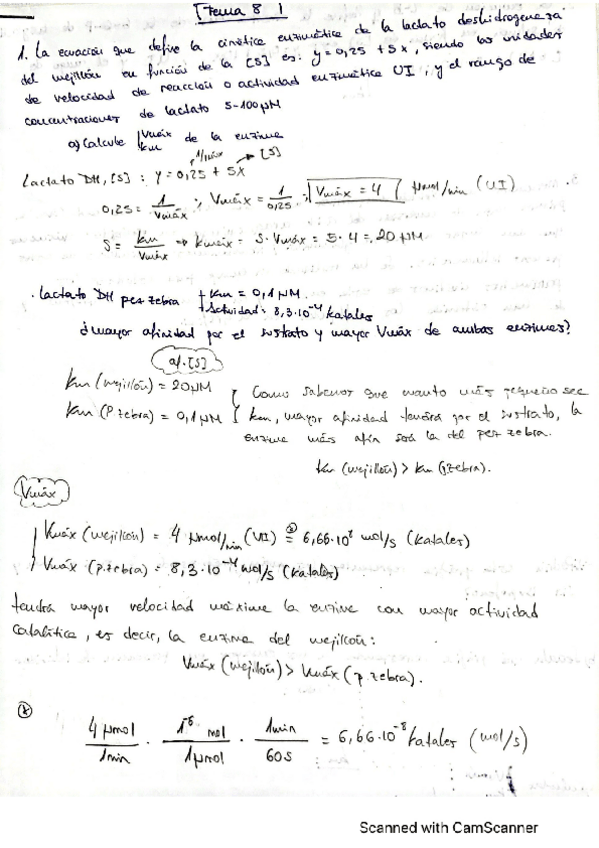 Tema 8
1. La ecuación que define la cinética enzimática de la lactato deshidrogenasa
del mejillón en función de la [S] es: y = 0,25 + 5x, siendo las unidades
de velocidad de reacción o actividad enzimática UI, y el rango de
concentraciones de lactato 5-100 µM
a) Calcule Vmáx km de la enzima
1/Vmáx → [S]
Lactato DH, [S] : y = 0,25 + 5x
0,25 = 1/Vmáx ; Vmáx = 1/0,25 ; Vmáx = 4 µmol/min (UI)
S = km/Vmáx ⇒ kmáx = S · Vmáx = 5 · 4 = 20 µM
· Lactato DH pez zebra + km = 0,1 µM
+ Actividad = 8,3·10⁻⁴ katales
¿mayor afinidad por el sustrato y mayor Vmáx de ambas enzimas?
af. [S]
km (mejillón) = 20 µM
km (P. zebra) = 0,1 µM
Como sabemos que cuanto más pequeño sea
km, mayor afinidad tendrá por el sustrato, la
enzima más afín será la del pez zebra.
km (mejillón) > km (pzebra).
Vmáx
Vmáx (mejillón) = 4 µmol/min (UI) = 6,66·10 mol/s (katales)
Vmáx (p.zebra) = 8,3·10⁻⁴ mol/s (katales)
tendrá mayor velocidad máxima la enzima con mayor actividad
catalítica, es decir, la enzima del mejillón:
Vmáx (mejillón) > Vmáx (p. zebra).
4 µmol/1min · 1⁻⁶ mol/1 µmol · 1min/60s = 6,66·10⁻⁸ katales (mol/s)
Scanned with CamScanner